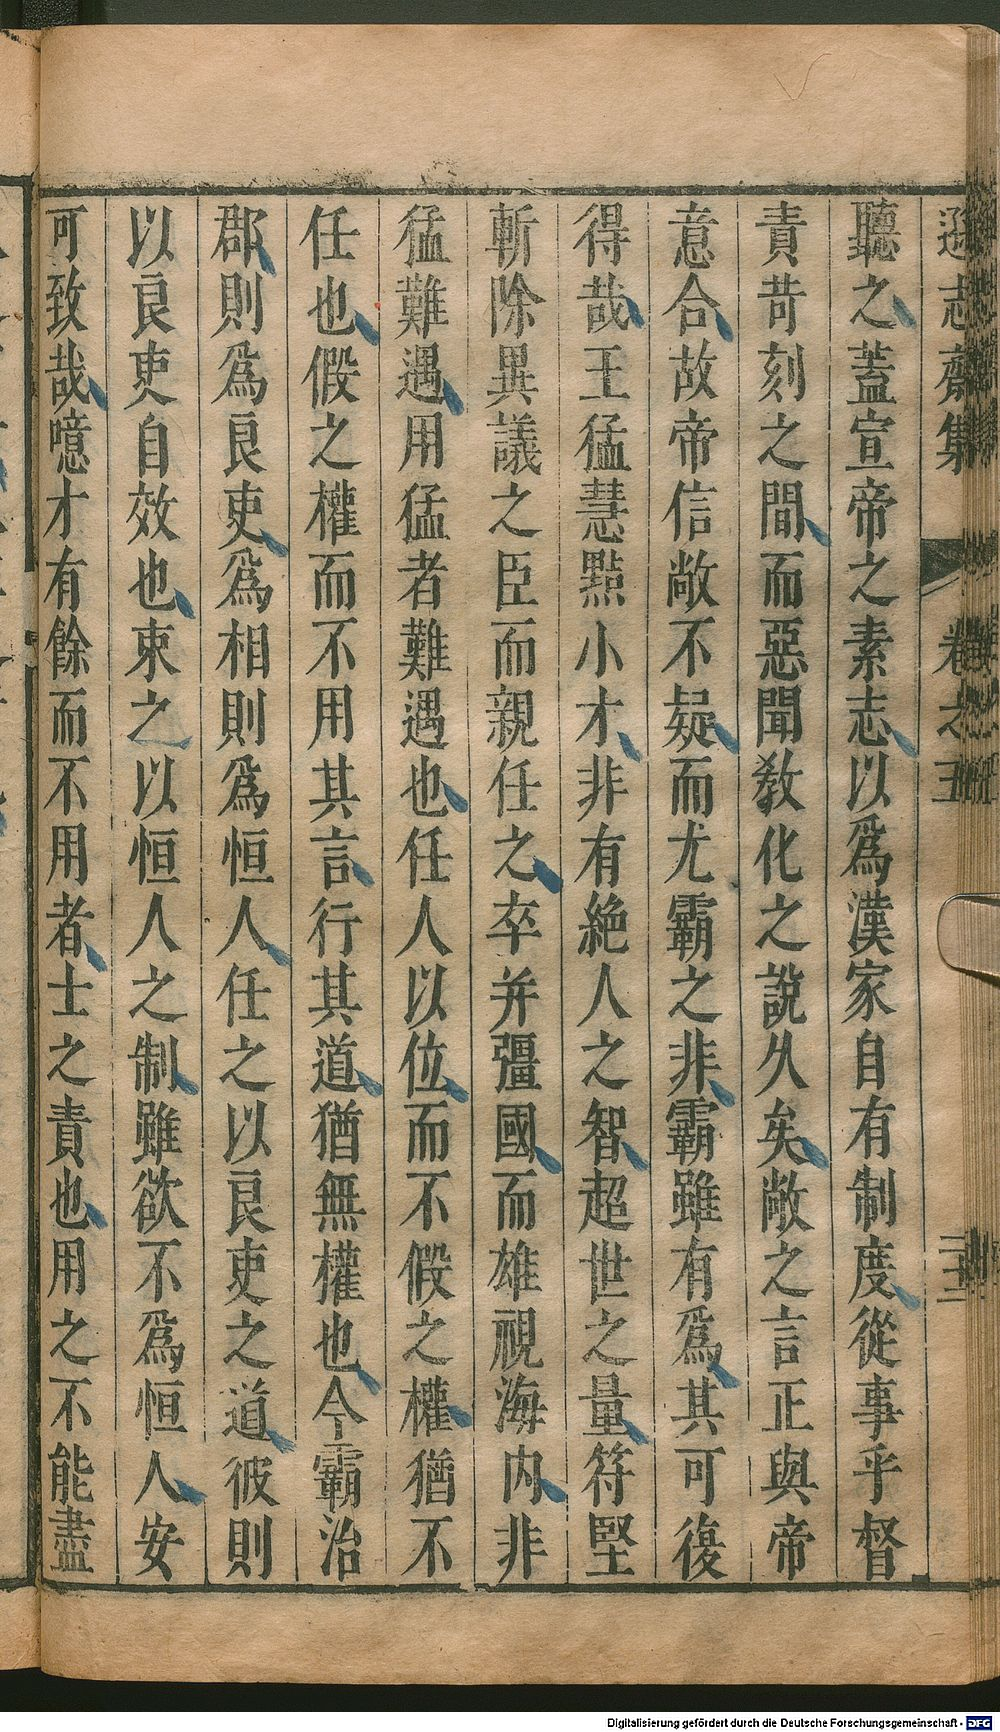 遜志齋集 卷之五 二十二
聽之蓋宣帝之素志以爲漢家自有制度從事乎督
責苛刻之間而惡聞敎化之說久矣敞之言正與帝
意合故帝信敞不疑而尤霸之非霸雖有爲其可復
得哉王猛慧黠小才非有絶人之智超世之量符堅
斬除異議之臣而親任之卒并彊國而雄視海内非
猛難遇用猛者難遇也任人以位而不假之權猶不
任也假之權而不用其言行其道猶無權也今霸治
郡則爲良吏爲相則爲恒人任之以良吏之道彼則
以良吏自效也束之以恒人之制雖欲不爲恒人安
可致哉噫才有餘而不用者士之責也用之不能盡
Digitalisierung gefördert durch die Deutsche Forschungsgemeinschaft - DFG